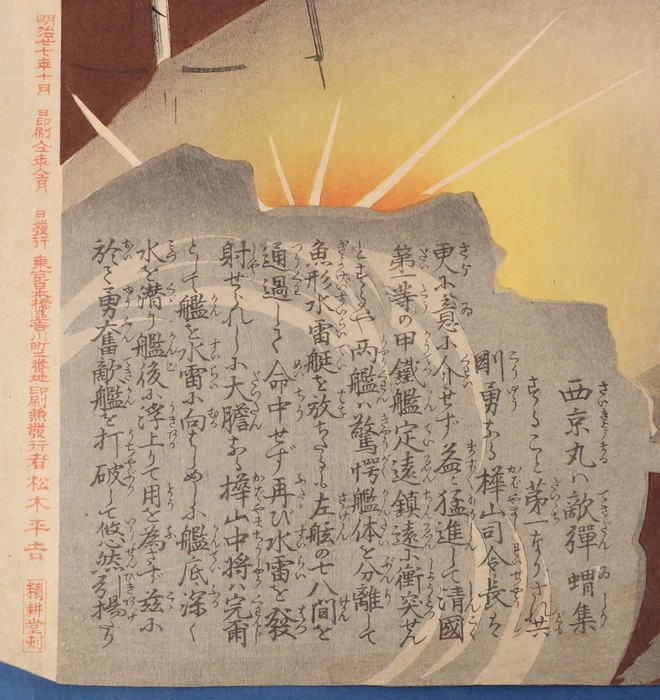 西京丸ハ敵彈蝟集
すること第一なりされ共
剛勇なる樺山司令長は
更に意に介せず益々猛進して清國
第一等の甲鐵艦定遠鎮遠に衝突せん
とするや両艦ハ驚愕艦体を分離して
魚形水雷艇を放ちたるも左舷の七八間を
通過して命中せず再び水雷を發
射せられしに大膽なる樺山中将ハ完爾
として艦を水雷に向わしめしに艦底深く
水を潜り艦後に浮上りて用を為さず茲に
於て勇奮敵艦を打破して悠然引揚たり
明治廿七年十月 日印刷仝年仝月 日發行 東京日本橋區吉川町二番地印刷兼發行者 松木平吉 精耕堂刻